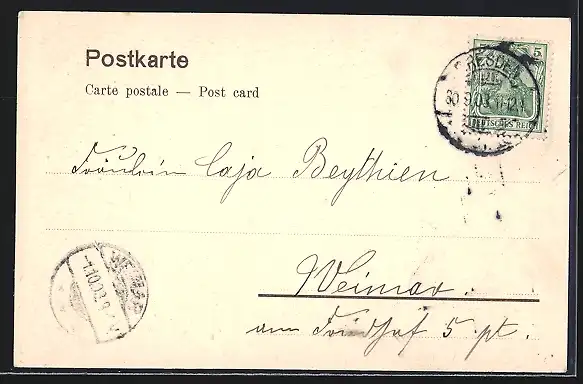 Postkarte
Carte postale — Post card
5
DRESDEN
30.9.03.11-12V.
DEUTSCHES REICH
Fräulein Caja Beythien
WEIMAR
1.10.03.
Weimar.
am Friedhof 5 pt.